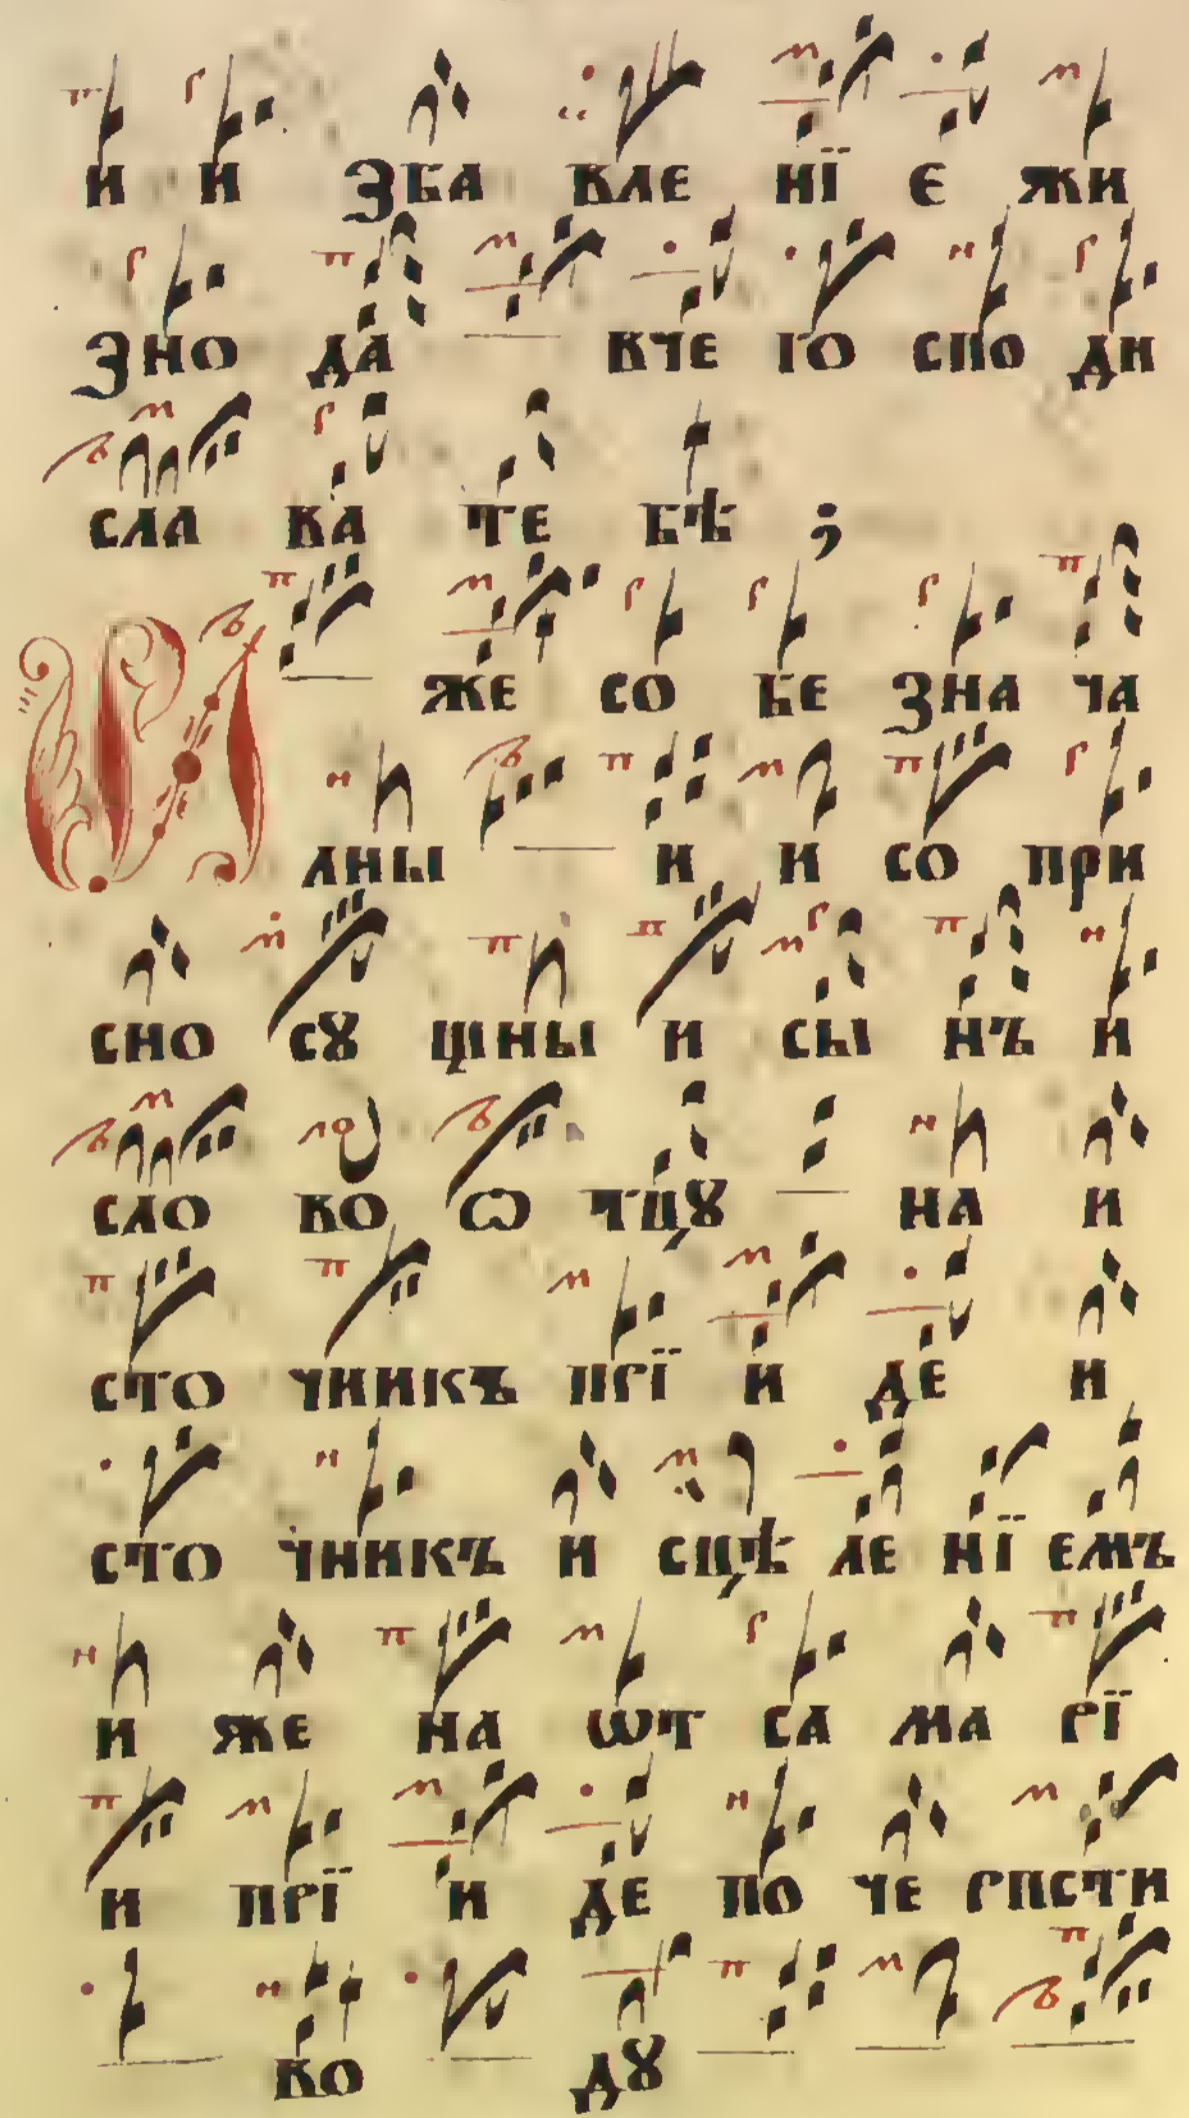 и и зба вле нї е жи
зно да вче го спо ди
сла ва те бѣ ;
И же со бе зна ча
лны и и со при
сно сꙋ щны и сы нъ и
сло во ѡ тцꙋ на и
сто чникъ прї и де и
сто чникъ и сцѣ ле нї емъ
и же на ѡт са ма рї
и прї и де по че рпсти
во дꙋ